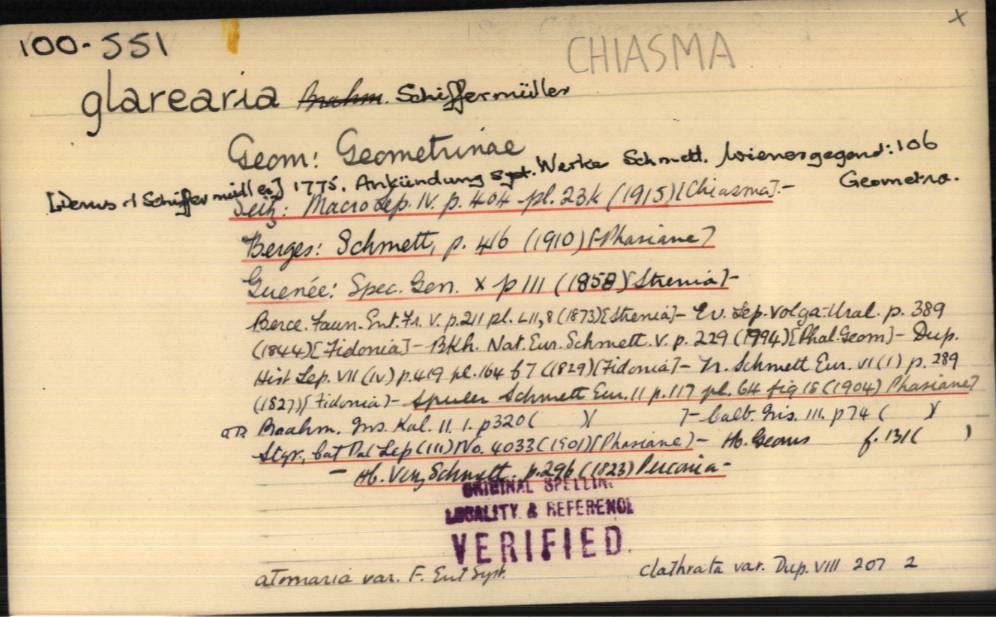 x
100-551
CHIASMA
glarearia Brahm. Schiffermüller
Geom: Geometrinae
[Denis & Schiffermüller] 1775, Ankündung syst. Werke Schmett. Wienergegend: 106
Geometra.
Seitz: Macrolep. IV. p. 404 pl. 23k (1915)[Chiasma].-
Berges: Schmett, p. 416 (1910)[Phasiane]
Guenée: Spec. Gen. X p 111 (1858)[Strenia]-
Berce. Faun. Ent. Fr. V. p. 211 pl. LII, 8 (1873)[Strenia]- Ev. Lep. Volga-Ural. p. 389
(1844)[Fidonia]- Bkh. Nat. Eur. Schmett. V. p. 229 (1994)[Phal. Geom]- Dup.
Hist Lep. VII (IV) p. 419 pl. 164 f 7 (1829)[Fidonia]- Tr. Schmett Eur. VI (1) p. 289
(1827)[Fidonia]- Spuler Schmett Eur. II p. 117 pl. 64 fig 18 (1904) Phasiane]
Braahm. Ins. Kal. II. 1. p 320 ( )[ ]- Calb. Iris. III. p 74 ( )[
Stgr. Cat Pal Lep (III) No. 4033 (1901)[Phasiane]- Hb. Geoms f. 131 ( )
- Hb. Verz. Schmett. p. 296 (1823) Perconia-
ORIGINAL SPELLING
LOCALITY & REFERENCE
VERIFIED.
atomaria var. F. Ent Syst. clathrata var. Dup. VIII 207 2